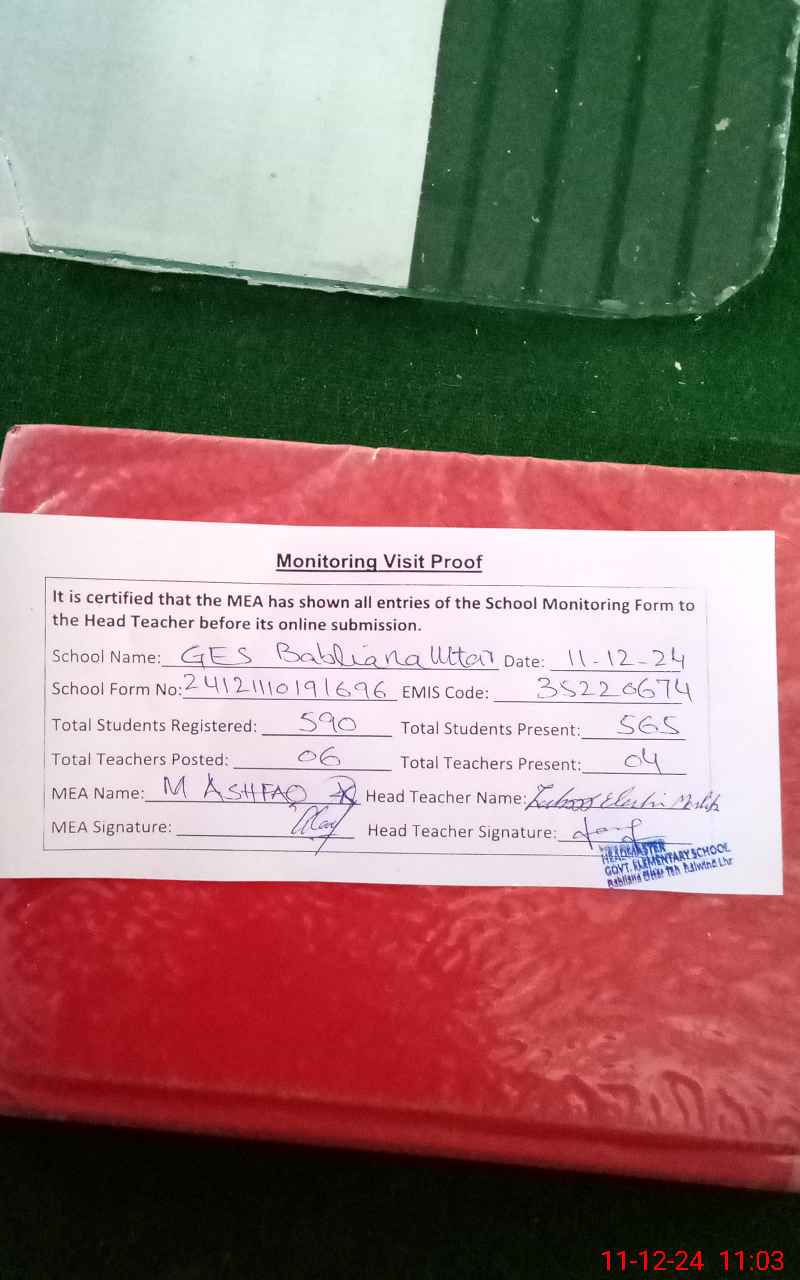 Monitoring Visit Proof
It is certified that the MEA has shown all entries of the School Monitoring Form to
the Head Teacher before its online submission.
School Name: GES Babliana Uttar Date: 11-12-24
School Form No: 24121110191696 EMIS Code: 35220674
Total Students Registered: 590 Total Students Present: 565
Total Teachers Posted: 06 Total Teachers Present: 04
MEA Name: M ASHFAQ Head Teacher Name:
MEA Signature: Head Teacher Signature:
HEADMASTER
GOVT. ELEMENTARY SCHOOL
Babliana Uttar Teh. Raiwind Lhr
11-12-24 11:03